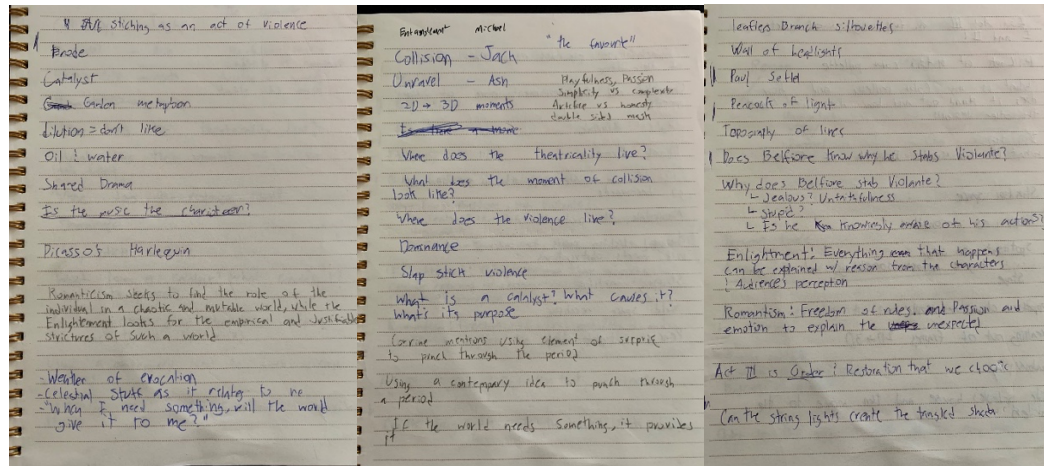 Stiching as an act of violence
Erode
Catalyst
Carlon metaphor
dilution = don't like
Oil & water
Shared Drama
Is the music the character?
Picasso's Harlequin
Romanticism seeks to find the role of the
individual in a chaotic and mutable world, while the
Enlightement looks for the empirical and Justifiable
strictures of such a world
- Weather of evocation
- Celestial Stuff as it relates to me
- "When I need something, will the world
give it to me?"
Entanglement Michael
"the favourite"
Collision - Jack
Unravel - Ash
Playfulness, Passion
Simplicity vs complexity
Artifice vs honesty
double sided mesh
2D → 3D moments
Is there a
Where does the theatricality live?
What does the moment of collision
look like?
Where does the violence live?
Dominance
Slap stick violence
What is a catalyst? What causes it?
What's its purpose
Corrine mentions using element of surprise
to punch through the period
Using a contempary idea to punch through
a period
If the world needs something, it provides
it
leafless Branch silhouettes
Wall of headlights
Paul
Peacock of light
Topography of lines
Does Belfiore know why he stabs Violante?
Why does Belfiore stab Violante?
↳ Jealous? Unfaithfulness
↳ Stupid?
↳ Is he knowingly aware of his actions?
Enlightment: Everything that happens
can be explained w/ reason from the characters
& Audience's perception
Romantism: Freedom of rules, and Passion and
emotion to explain the unexpected
Act III is Order & Restoration that we choose
Can the string lights create the tangled